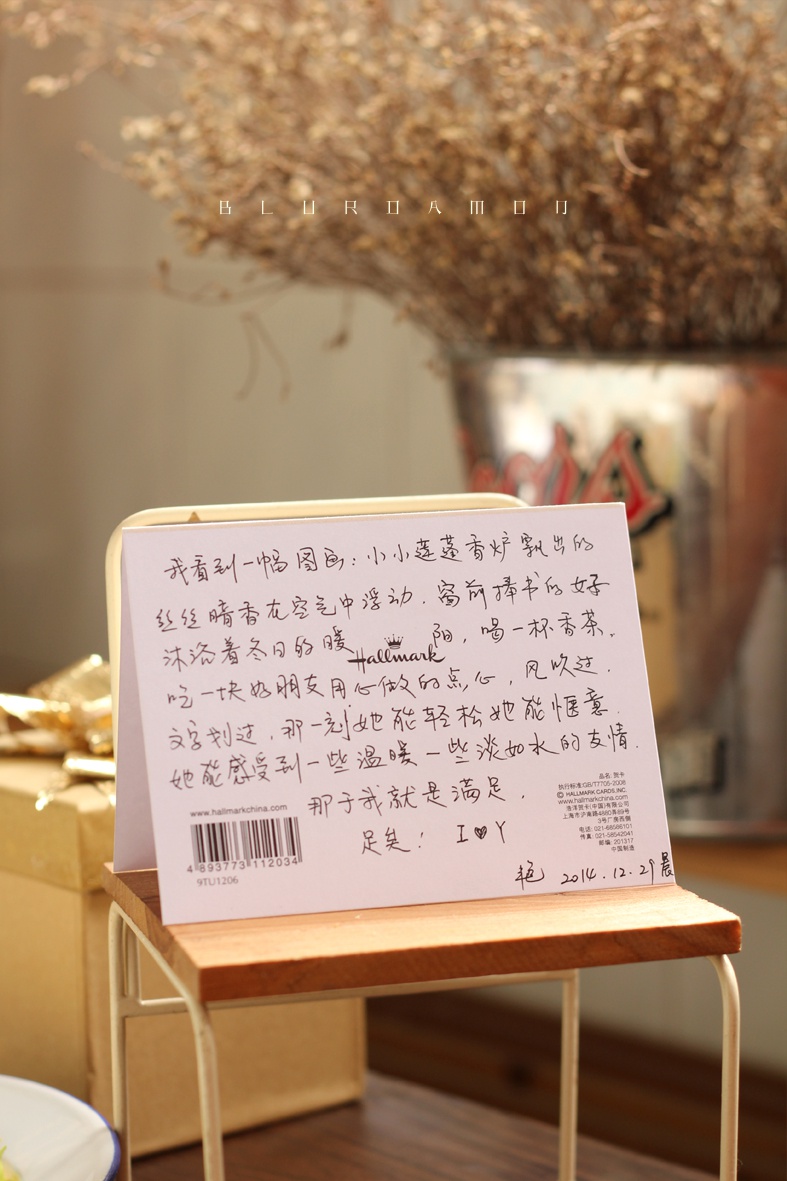 BLURDAMON
我看到一幅图画：小小莲蓬香炉飘出的
丝丝暗香在空气中浮动，窗前捧书的女子
沐浴着冬日的暖 阳，喝一杯香茶。
Hallmark
吃一块好朋友用心做的点心，风吹过，
文字划过，那一刻她能轻松她能惬意
她能感受到一些温暖一些淡如水的友情.
那于我就是满足，
足矣！ I♥Y
艳 2014.12.29晨
www.hallmarkchina.com
4 893773 112034
9TU1206
品名: 贺卡
执行标准:GB/T7705-2008
© HALLMARK CARDS,INC.
www.hallmarkchina.com
浩洋贺卡(中国)有限公司
上海市沪南路4880弄89号
3号厂房西侧
电话: 021-68586101
传真: 021-58542041
邮编: 201317
中国制造